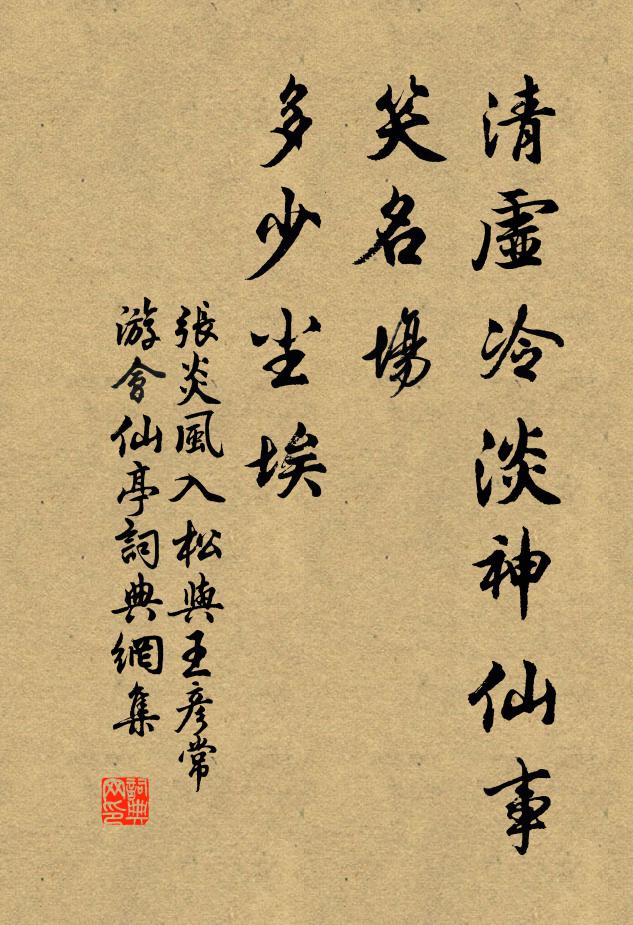 清虛冷淡神仙事
笑名場
多少尘埃
張炎風入松與王彥常
游會仙亭詞典網集
詞典网印